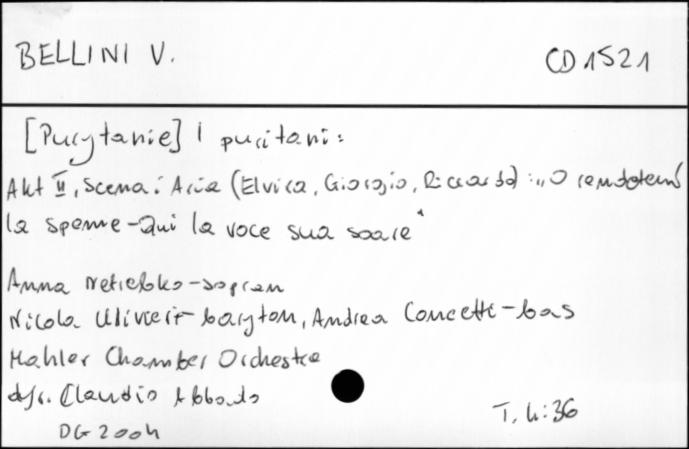 BELLINI V.
CD 1521
[Purytanie] I puritani:
Akt II, Scena i Aria (Elvira, Giorgio, Riccardo): „O rendetemi
la speme - Qui la voce sua soave"
Anna Netrebko - sopran
Nicola Ulivieri - baryton, Andrea Concetti - bas
Mahler Chamber Orchestra
dyr. Claudio Abbado
DG 2004
T. 4:36